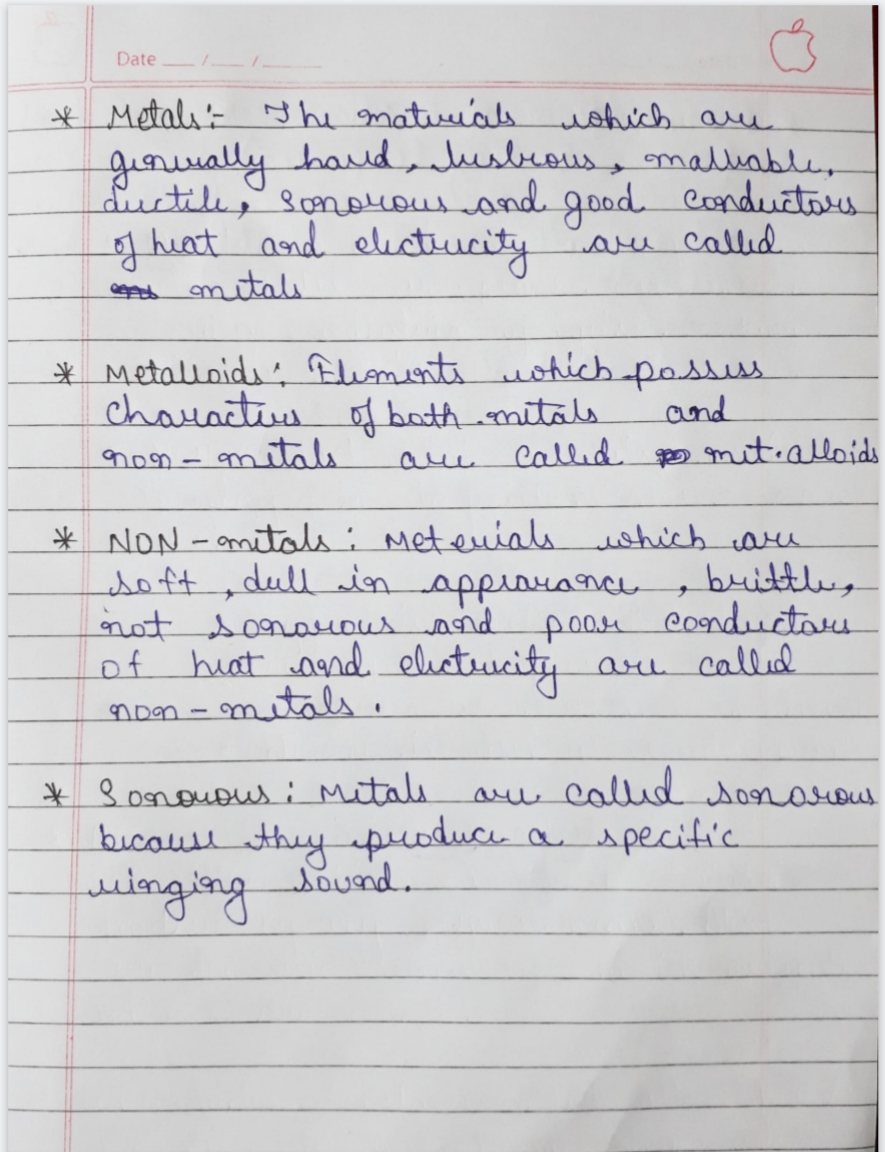 Date __ / __ / __
* Metals:- The materials which are
generally hard, lustrous, malleable,
ductile, sonorous and good conductors
of heat and electricity are called
metals
* Metalloids: Elements which possess
characters of both metals and
non-metals are called metalloids
* NON-metals: Meterials which are
soft, dull in appearance, brittle,
not sonorous and poor conductors
of heat and electricity are called
non-metals.
* Sonorous: Metals are called sonorous
because they produce a specific
ringing sound.